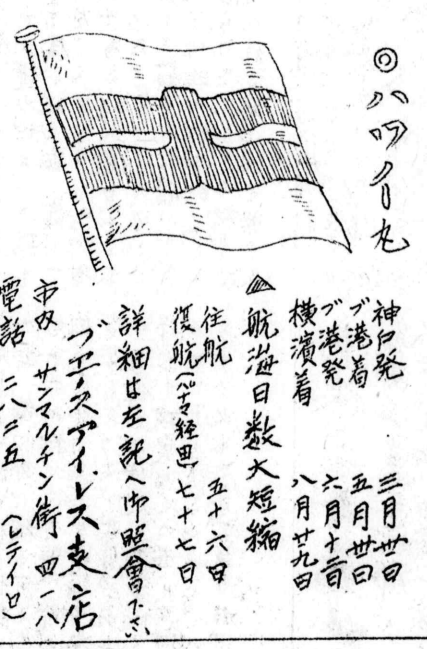 ◎ハワイ丸
神戸発 三月卅日
ブ港着 五月卅日
ブ港発 六月十二日
横濱着 八月廿九日
△航海日数大短縮
往航 五十六日
復航(パナマ経由) 七十七日
詳細は左記へ御照會下さい
ブエノスアイレス支店
市内 サンマルチン街 四一八
電話 二八二五 (レティロ)